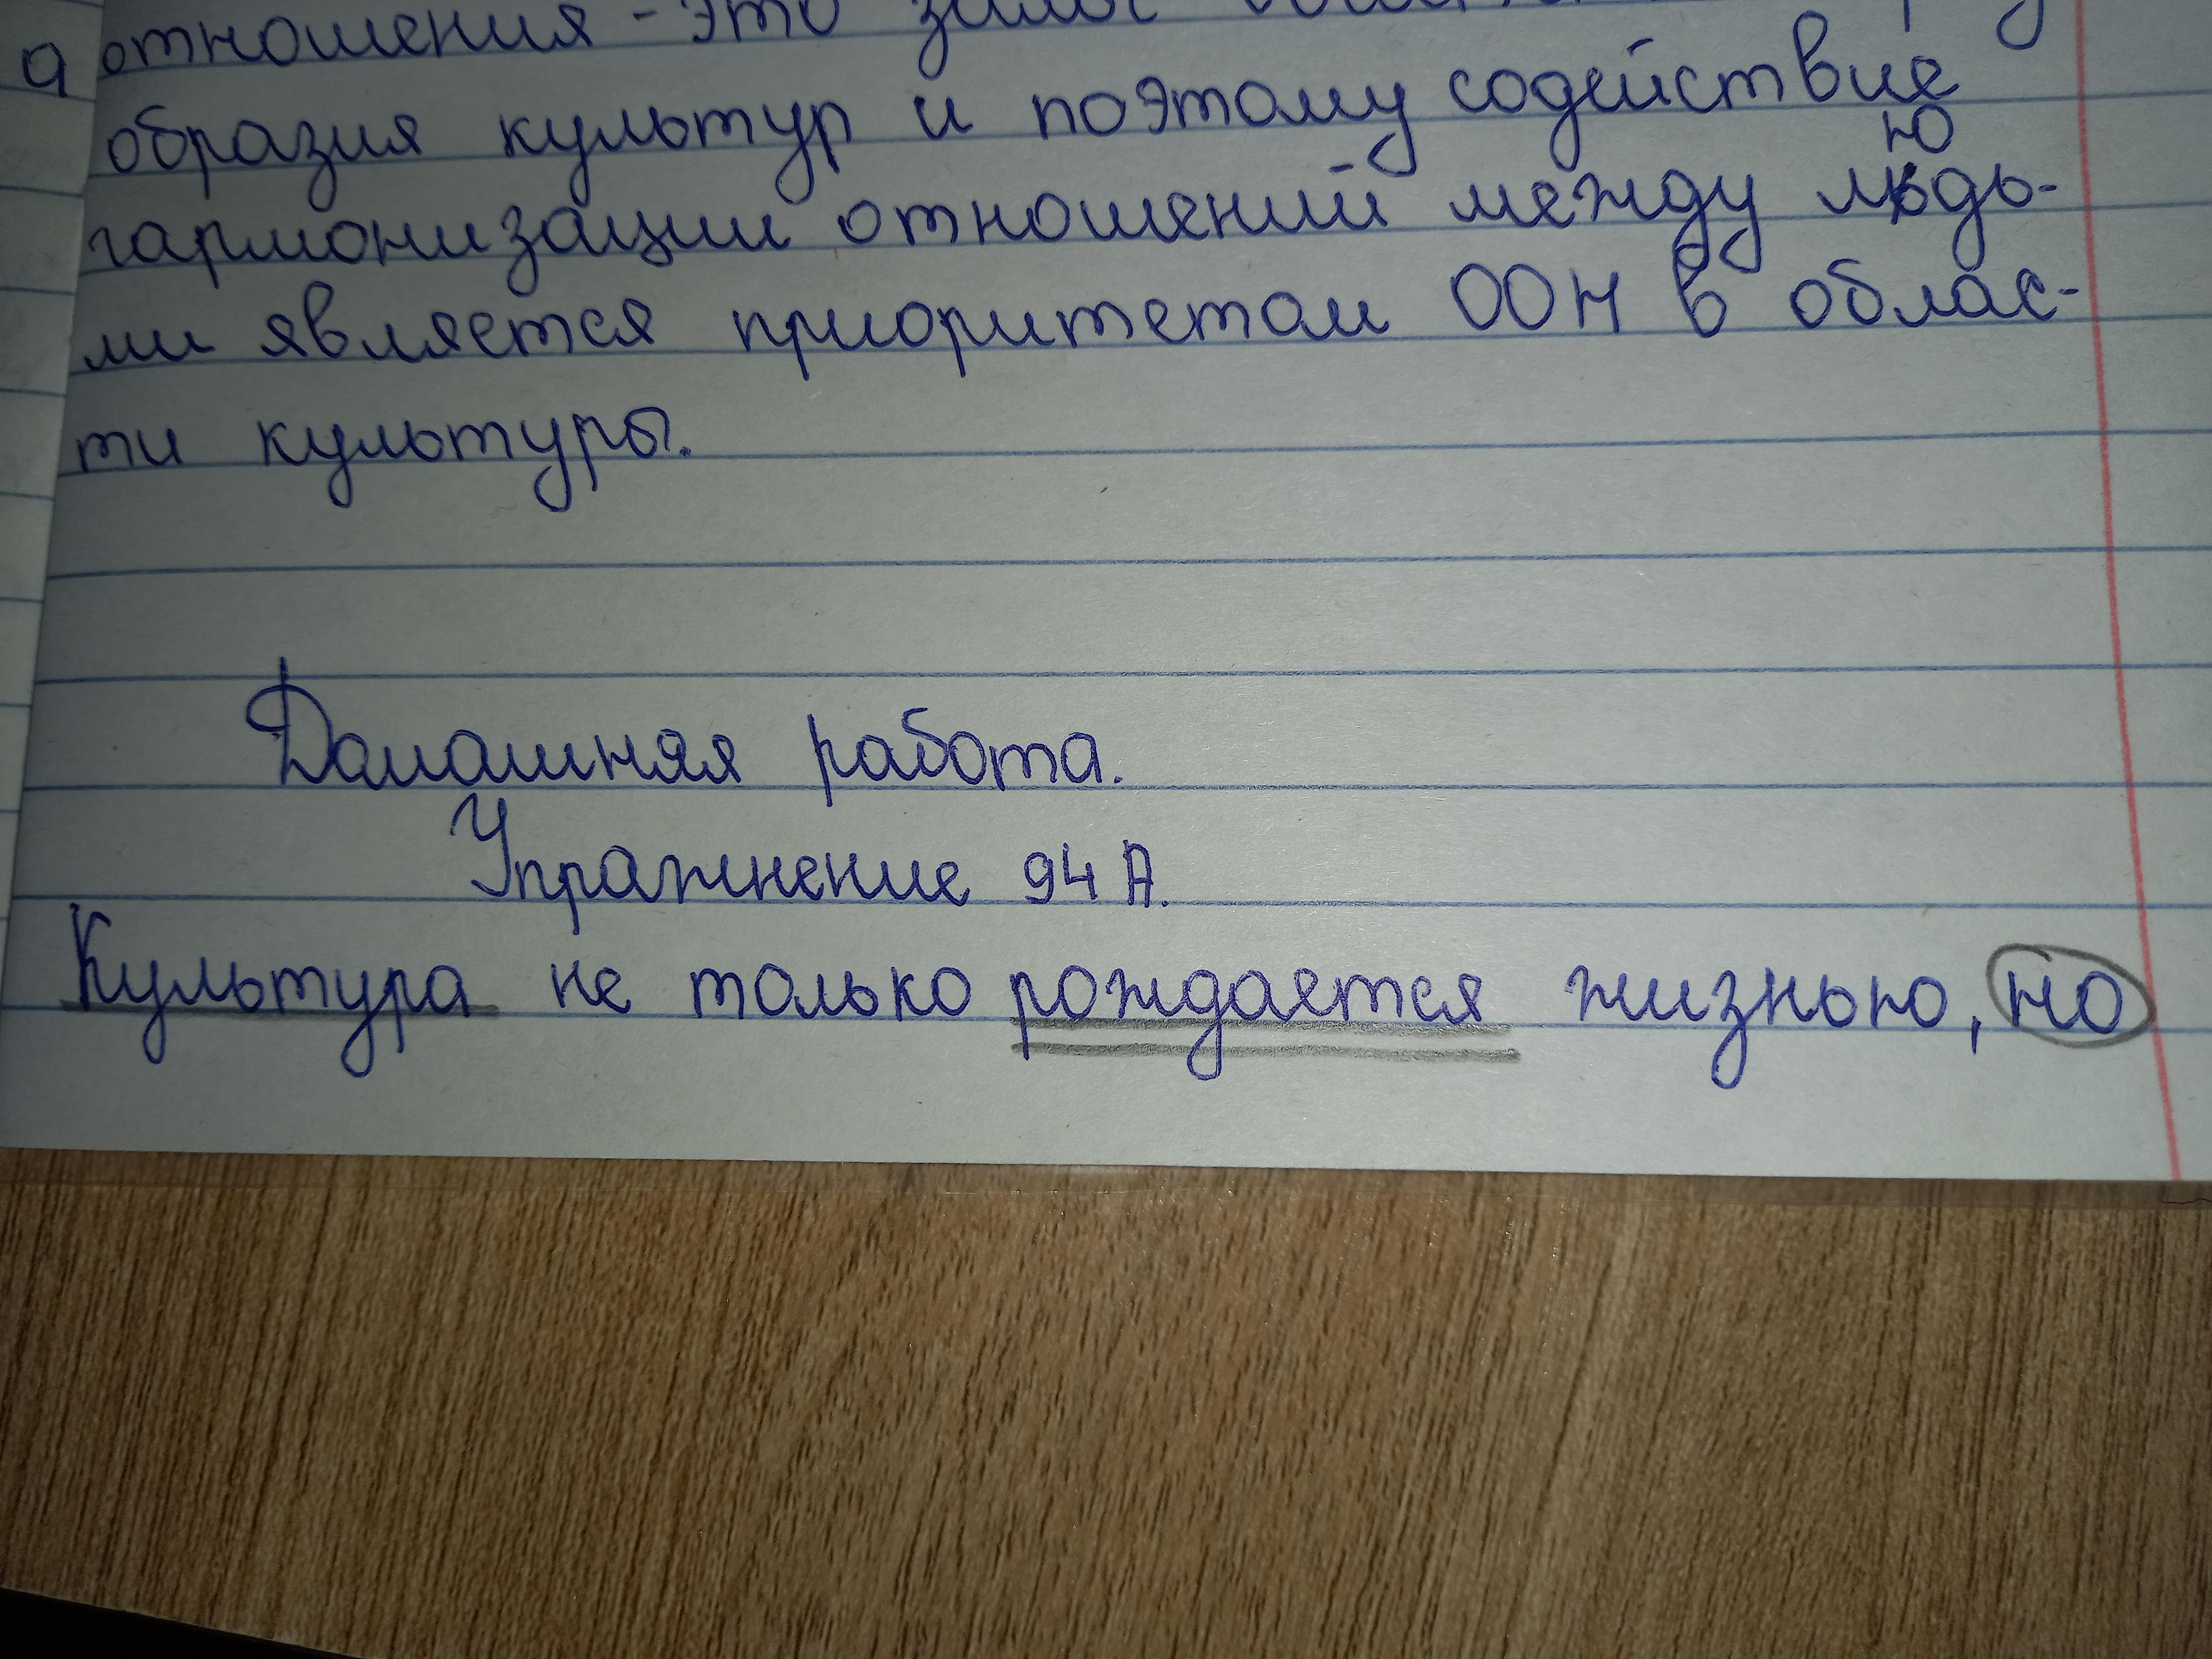 отношения - это залог
образия культур и поэтому содействие
гармонизации отношений между людь-
ми является приоритетом ООН в облас-
ти культуры.
Домашняя работа.
Упражнение 94 А.
Культура не только рождается жизнью, но